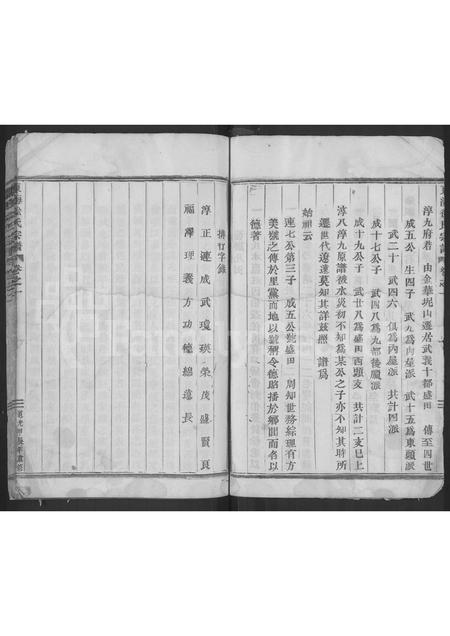 淳九府君 由金華坭山遷居武義十都盛田 傳至四世
成五公 生四子 武九爲內屋派 武十五爲東頭派
武二十 武四六 俱爲內屋派 共計四派
成十七公子 武四八爲九都後屬派
成十九公子 武廿八爲盛田西頭支 共計二支已上
淳八淳九原譜被水災初不知爲某公之子亦不知其時所
遷世代遼遠莫知其詳茲照 譜爲
始祖云
連七公第三子 成五公號盛田 周知世務綜理有方
美譽之傳於里黨而地以號稱令德路播於鄉閭而名以
德著
排行字錄
淳正連成武瓊瑛榮茂盛賢良
福澤理義方功德綿遠長
東海徐氏宗譜 卷之一